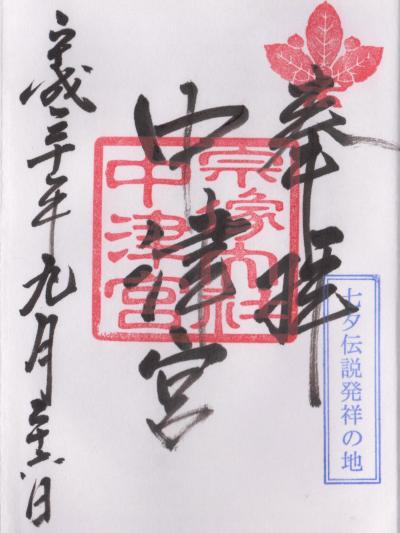 奉拝
七夕伝説発祥の地
中津宮
宗像大社
中津宮
平成三十年九月二十六日